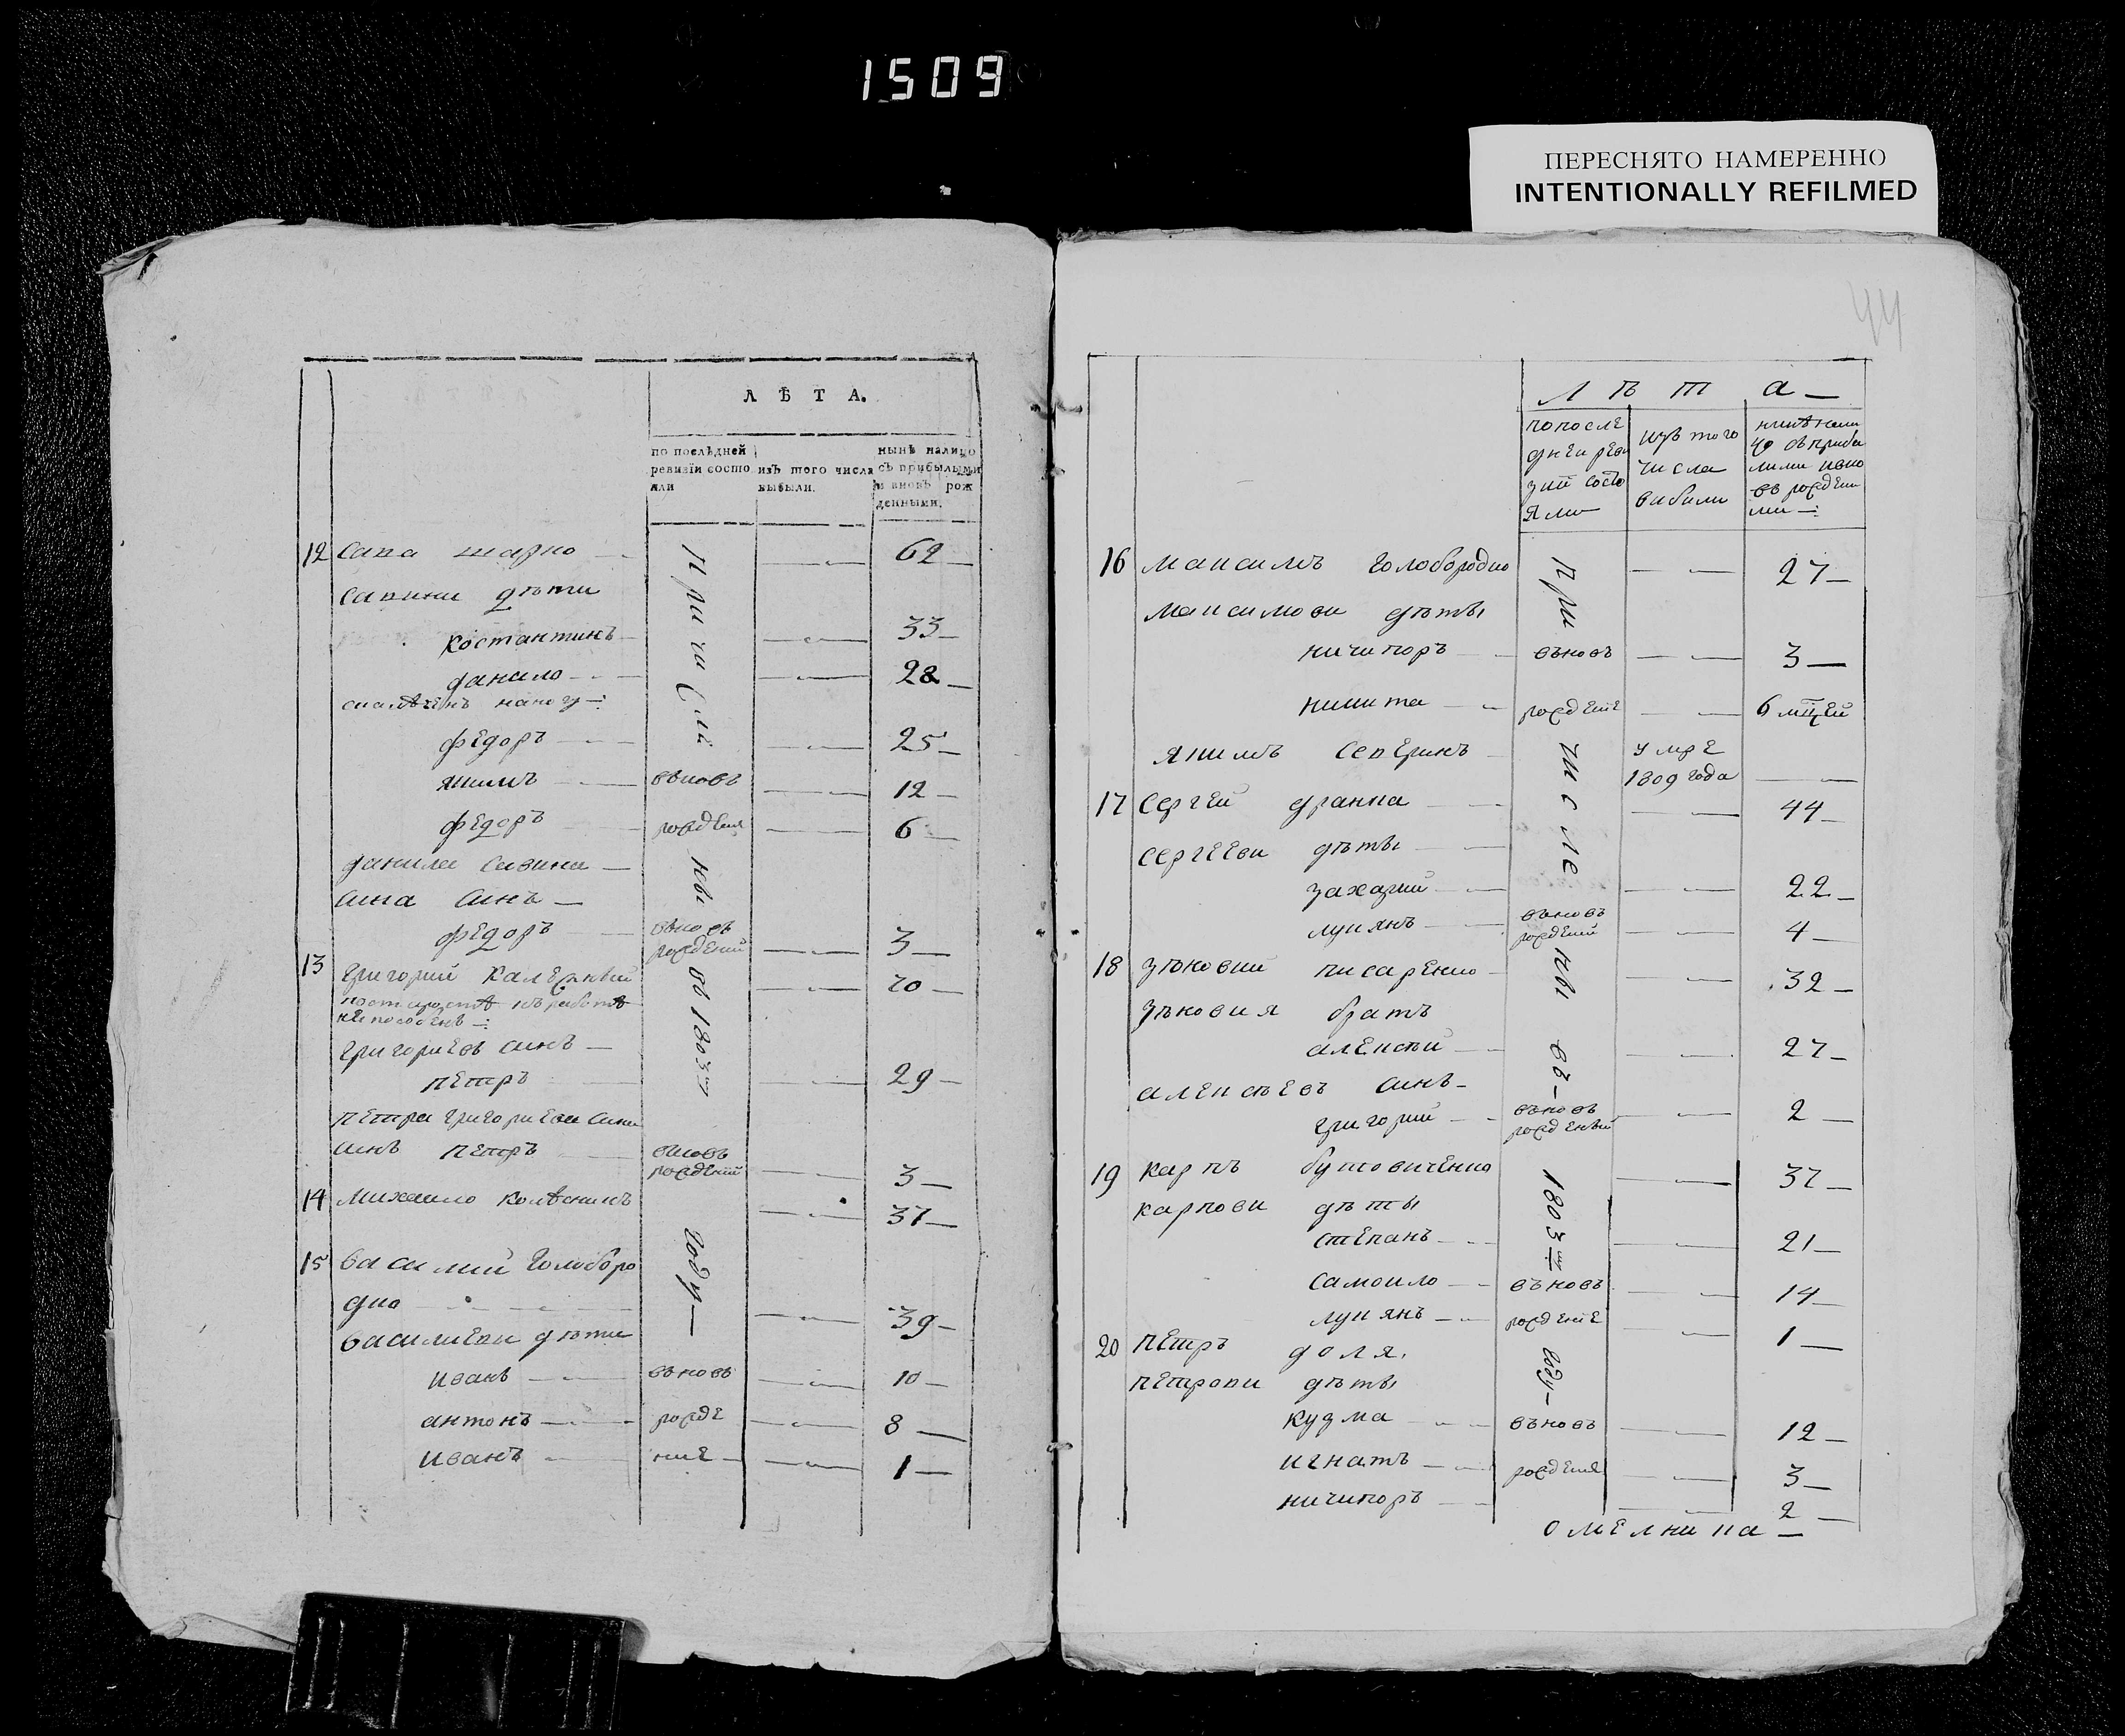 1509
ПЕРЕСНЯТО НАМЕРЕННО
INTENTIONALLY REFILMED
44
ЛѢТА.
по послѣдней ревизіи состояли
изъ того числа выбыли.
нынѣ налицо съ прибылыми и вновь рожденными.
12 Сава 62
Савини дѣти
Костантинъ 33
данило 28
федоръ 25
якимъ вѣновъ 12
федоръ рожденіе 6
данила Савина
сина синъ
федоръ вѣновъ рожденій 3
13 григорий 70
григориевъ синъ
петръ 29
петра григориева сина
синъ петръ вновъ рожденій 3
14 Михаило Колѣсникъ 37
15 василий голобородко 39
василиеви дѣти
иванъ вѣновъ 10
антонъ рожде 8
иванъ ние 1
при числѣ
въ 1803мъ
году
Лѣта
по последней ревизии состояли
изъ того числа вибили
16 максимъ голобородко 27
максимови дѣты
ничипоръ въновъ 3
никита рождение 6 мцей
якимъ умре 1809 года
17 Сергей дранка 44
Сергееви дѣты
захарий 22
лукянъ въновъ рожденій 4
18 зѣновий писаренко 32
зѣновия братъ
алексѣй 27
алексѣевъ синъ
григорий въновъ рожденый 2
19 карпъ 37
карпови дѣты
степанъ 21
самоило въновъ 14
лукянъ рождение 1
20 петръ доля
петрови дѣты
кузма въновъ 12
игнатъ рождения 3
ничипоръ 2
при числе
въ
1803м
году
омелника